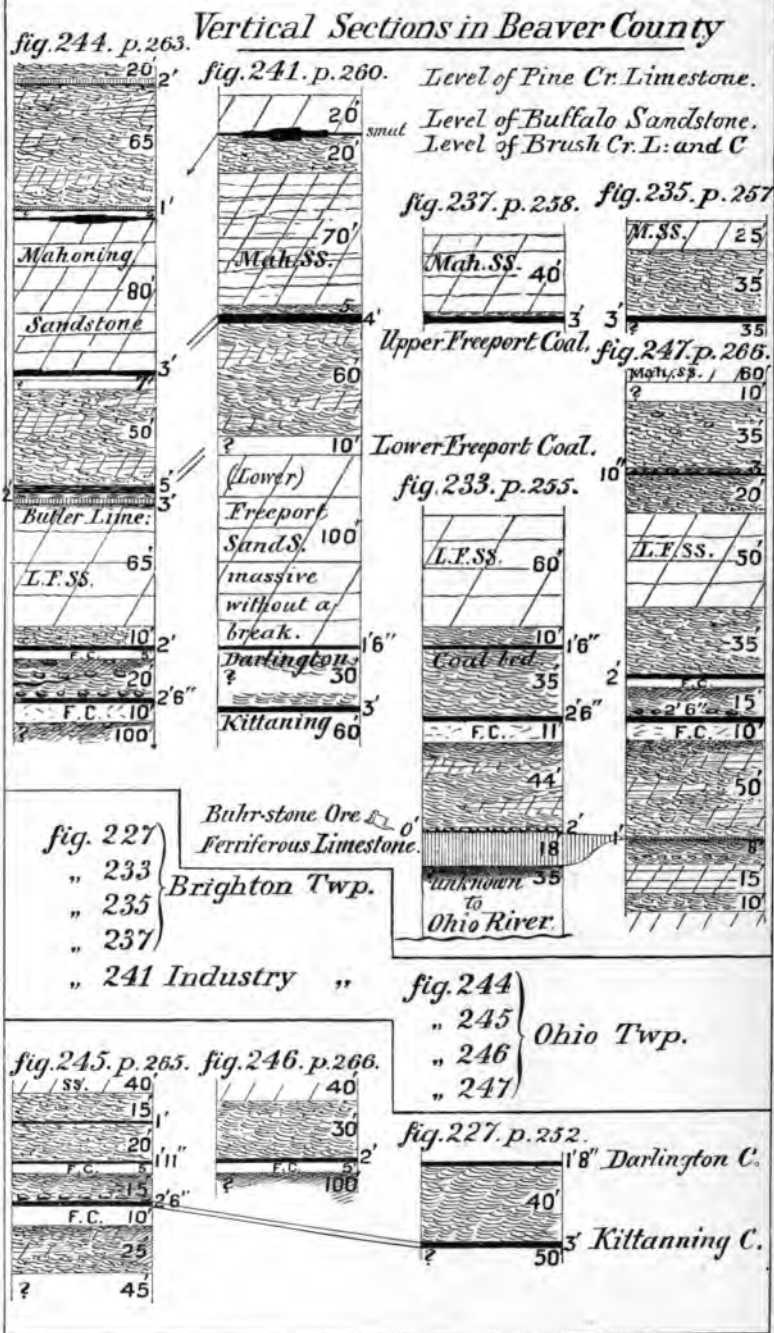 Vertical Sections in Beaver County
fig. 244. p. 263.
20'
2'
65'
1'
Mahoning
80'
Sandstone
3'
7'
50'
5'
2'
3'
Butler Lime:
65'
L.F.SS.
10'
2'
F.C. 5'
20'
2'6"
F.C. 10'
? 100'
fig. 241. p. 260.
20'
smut
20'
70'
Mah. SS.
5'
4'
60'
? 10'
(Lower)
Freeport
SandS. 100'
massive
without a
break.
1'6"
Darlington.
? 30
3'
Kittaning 60'
Level of Pine Cr. Limestone.
Level of Buffalo Sandstone.
Level of Brush Cr. L: and C
fig. 237. p. 258.
Mah. SS.
40'
3'
Upper Freeport Coal.
Lower Freeport Coal.
fig. 235. p. 257
M.SS. 25'
35'
3'
? 35
fig. 247. p. 266.
Mah. SS. 60'
? 10'
35'
3'
10"
20'
L.F.SS. 50'
35'
2'
F.C.
15'
2'6"
F.C. 10'
50'
1'
8"
15'
10'
fig. 233. p. 255.
L.F.SS. 60'
10'
1'6"
Coal bed
35'
2'6"
F.C. 11'
44'
2'
Buhr-stone Ore 0'
Ferriferous Limestone.
18
35
unknown
to
Ohio River.
fig. 227
„ 233
„ 235
„ 237
Brighton Twp.
„ 241 Industry „
fig. 244
„ 245
„ 246
„ 247
Ohio Twp.
fig. 245. p. 265.
SS. 40'
15'
1'
20'
1'11"
F.C. 5'
15'
2'6"
F.C. 10'
25'
? 45'
fig. 246. p. 266.
40'
30'
2'
F.C. 5'
? 100'
fig. 227. p. 252.
1'8" Darlington C.
40'
3' Kittanning C.
? 50'